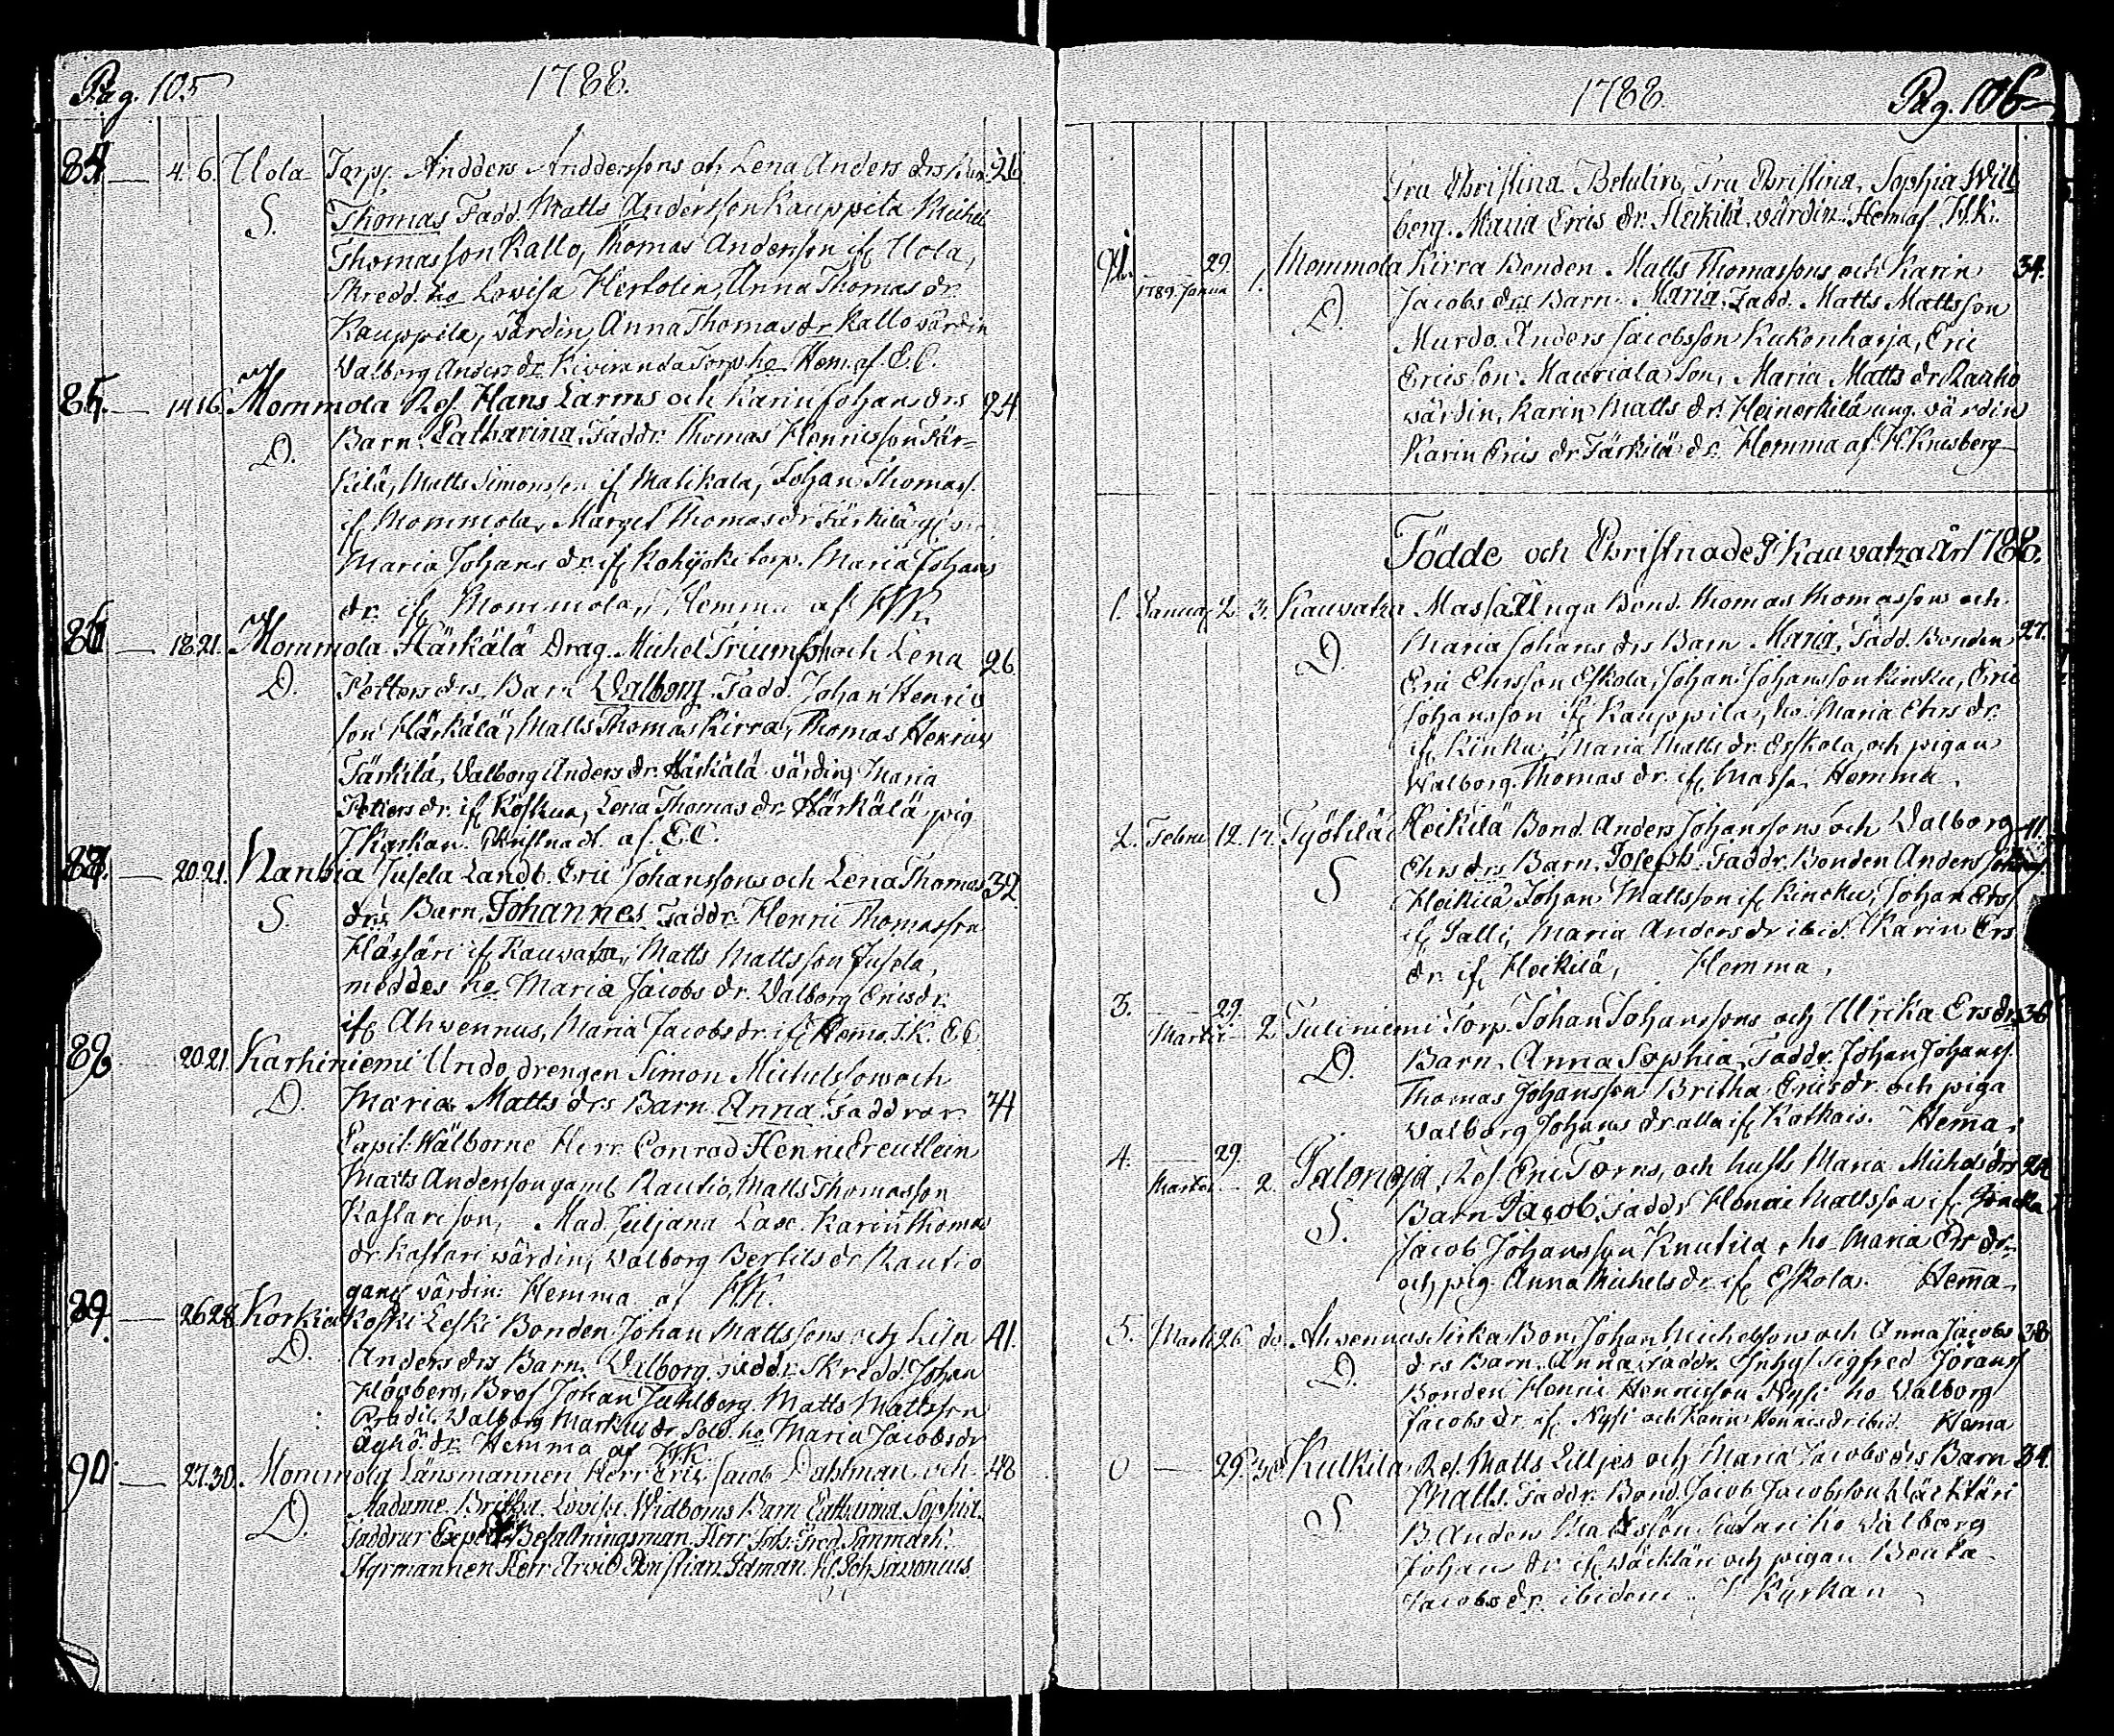 Pag. 105 1788.
84 — 4. 6. Uola Torp. Andders Anddersons och Lena Anders drs Barn 26
S. Thomas Fadd. Matts Andersson Kauppila Michel
Thomasson Kallo, Thomas Andersson if Uola,
Skredd. ho Lovisa Hertolin, Anna Thomas dr
Kauppila, värdin, Anna Thomas dr Kallo värdin
Valborg Anders dr Kiviranda Torp. ho Hem. af E. C.
85. — 14 16. Mommola Ref. Hans Larms och Karin Johans drs 24
D. Barn. Catharina. Faddr. Thomas Henricsson Tär-
kilä, Matts Simonsson if Malikala, Johan Thomass.
if Mommola, Marget Thomas dr Tärkilä
Maria Johans dr if Kohyoki torp. Maria Johans
dr. if Mommola, Hemma af H.K.
86 — 18 21. Mommola Härkälä Drag. Michel Triumph och Lena 26
D. Petters drs. Barn Valborg. Fadd. Johan Henrics
son Härkälä, Matts Thomas Kirra, Thomas Henrics
Tärkilä, Valborg Anders dr. Härkälä värdin, Maria
Petters dr. if Koskua, Lena Thomas dr. Härkälä pig
I Kyrkan. Christnadt af. E.C.
87. — 20 21. Nanhia Jusela Landb. Eric Johanssons och Lena Thomas 32
S. drs Barn. Johannes Faddr. Henric Thomasson
if Kauvatza, Matts Mattsson Jusela,
meddes ho Maria Jacobs dr. Valborg Erics dr.
if Ahvennus, Maria Jacobs dr. if Hemo. I.K. E C
88 — 20 21. Karhiniemi Undo, drengen Simon Michelssons och
D. Maria Matts drs Barn Anna. Faddrar 34
Capit. Wälborne Herr Conrad Henric Creutlein
Matts Andersson gaml Rautio, Matts Thomasson
Kaslari son, Mad. Juljana Lax. Karin Thomas
dr Kaslari värdin, Valborg Bertils dr Rautio
gaml värdin: Hemma af H.K.
89. — 26 28. Korkia Koski Leski Bonden Johan Mattssons och Liln 41.
D. Anders drs Barn. Valborg. Faddr. Skredd. Johan
Högberg, Brof Johan Juhlberg. Matts Mattsson
Valborg Markus dr. Sold. ho Maria Jacobs dr
dr. Hemma af H.K.
90. — 27. 30. Mommola Länsmannen Herr Eric Jacob Dahlman och 48
D. Madame. Britha Lovisa Widboms Barn Catharina Sophia.
Faddrar Exp. Befallningsman Herr Joh. Fred. Tanmark.
Styrmannen Herr Arvid Christian Idman. H. Joh Savonius.
1788 Pag. 106
Fru Christina Betulin, Fru Christina, Sophia Will
berg. Maria Erics dr. Heikilä, värdin. Hem af H.K.
91. — 29. Mommola Kirra Bonden Matts Thomassons och Karin 34.
1789. Janua 1.
D. Jacobs drs Barn. Maria. Fadd. Matts Mattsson
Murdo. Anders Jacobsson Kukonharja, Eric
Ericsson Mauriala son, Maria Matts dr Rautio
värdin, Karin Matts dr. Heinerkilä ung. värdin
Karin Erics dr Tärkilä dr. Hemma af H. Knesberg
Födde och Christnade I Kauvatza År 1788.
1. Januar 2. 3. Kauvatza Massa Unga Bond. Thomas Thomassons och
D. Maria Johans drs Barn Maria, Fadd. Bonden 27.
Eric Ehrsson Eskola, Johan Johansson Kinku, Eric
Johansson if Kauppila, ho. Maria Ehrs dr.
if Kinku, Maria Matts dr Eskola, och pigan
Walborg. Thomas dr. if Massa. Hemma.
2. Febru 12. 17. Työtilä Heikilä Bond. Anders Johanssons och Valborg 41.
S Ehrs drs Barn. Joseph. Faddr. Bonden Anders
Heikilä, Johan Mattsson if Kincku, Johan Ers
if Salli, Maria Anders dr ibid. Karin Ers
dr. if Heikilä, Hemma.
3. — 29. Tuliniemi Torp. Johan Johanssons och Ulrika Ers drs 36
Martii 2
D. Barn. Anna Sophia. Faddr. Johan Johanss.
Thomas Johansson Britha Erics dr. och piga
Walborg Johans dr alla if Katkais. Hema.
4. — 29. Palonoja, Ref Eric Torns, och husts Maria Michels drs 24
Martii — 2.
S. Barn Jacob. Faddr Henric Mattsson if
Jacob Johansson Knutila, ho Maria Ers dr
och pig Anna Michels dr. if Eskola. Hema.
5. Marti 26. do. Ahvennus Sirka Bon. Johan Michelssons och Anna Jacobs 38
D. drs Barn. Anna, Faddr. Sigfred Jöranss
Bonden Henric Henricsson Nysi ho Valborg
Jacobs dr. if Nysi och Karin Henrics dr ibid. Hema
6 — 29. 30 Kulkila Ref. Matts Liljes och Maria Jacobs drs Barn 34.
S Matts. Faddr. Bond. Jacob Jacobsson Wäcktäri
B. Anders Mattsson ho Valborg
Johans dr. if Wäcktäri och pigan Beata
Jacobs dr. ibidem. I Kyrkan